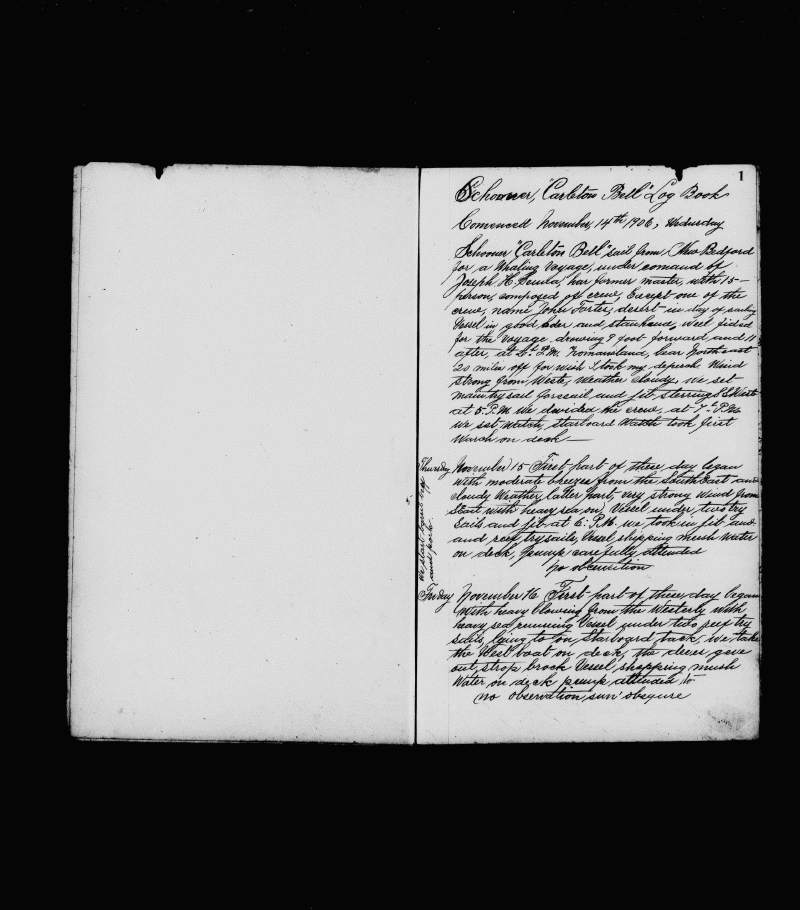 1
Schooner, "Carleton Bell" Log Book
Comenced November, 14th 1906, Wedursday
Schooner "Carleton Bell" sail from, New Bedford
for a Whaling Voyage, under comand of
Joseph H. Senna, her former master, with 15-
person, composed of crew, Except one of the
crew, name John Forter, desert in day of sailing
Vessel in good and well
for the Voyage drowing 9 foot forward, and 11
after, at P.M. Nomansland, bear North east
20 miles off for wish I took my deperch Wind
strong from, West, weather cloudy, we set
main try sail foresail and jib, sterring S.E. West
at 5. P.M. we devided the crew, at 7.- P.M.
we set watch, starboard Watch took first
Warch on deck
Thursday November 15 First part of these day began
with moderate breezes from the South East and
cloudy Weather, latter part, very strong Wind from
East with heavy sea on, Vessel under, two try
sails and jib at 6: P.M. we took in jib and
and reef trysails, Vessel shipping mush water
on deck, pump carefully attended
no obcervition
and pork
Friday November 16 First part of these day began
with heavy blowing from the Westerly with
heavy sea running Vessel under two reef try
sails, laying to on starboard tack, we take
the West boat on deck, the gave
out, strop brock Vessel, shopping mush
Water on deck pump attended to
no observation, sun obscure